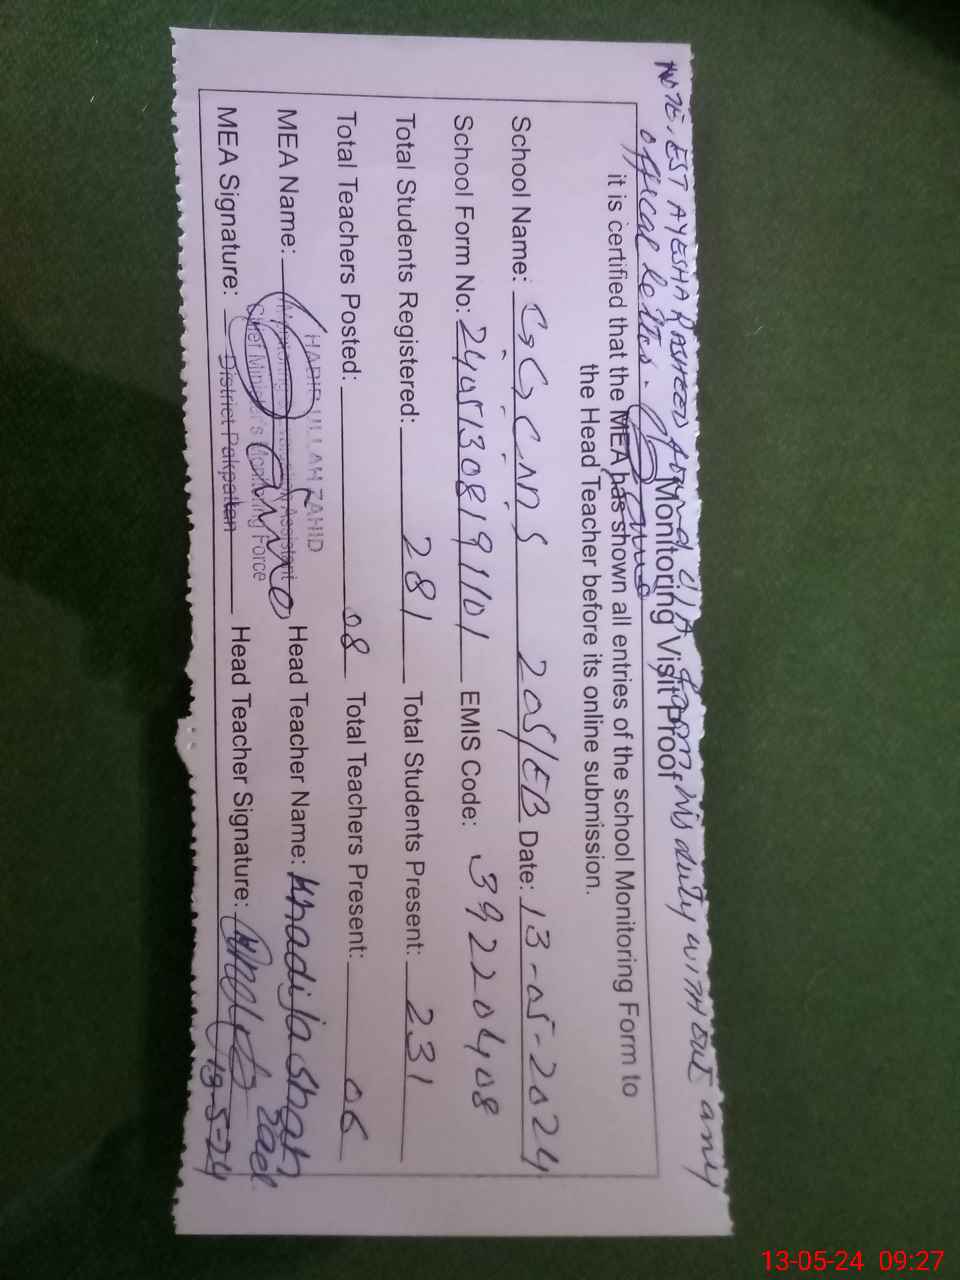 NOTE. EST AYESHA RASHEED found U/A from his duty without any
offical letter.
Monitoring Visit Proof
it is certified that the MEA has shown all entries of the school Monitoring Form to
the Head Teacher before its online submission.
School Name: G.G.C.M.S 205/EB Date: 13-05-2024
School Form No: 24051308191101 EMIS Code: 39220408
Total Students Registered: 281 Total Students Present: 231
Total Teachers Posted: 08 Total Teachers Present: 06
MEA Name: ZAHID Head Teacher Name: Khadija Shah
Assistant
Chief Minister's Monitoring Force
District Pakpattan
MEA Signature: Head Teacher Signature:
13-5-24
13-05-24 09:27